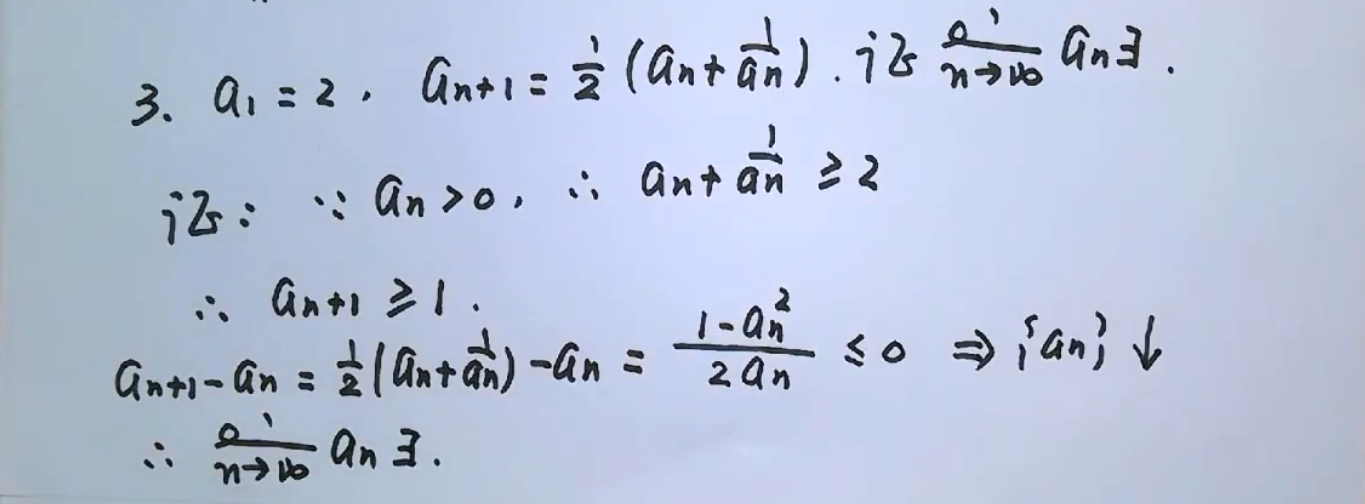 3. a₁ = 2, aₙ₊₁ = 1/2 (aₙ + 1/aₙ). 证 lim n→∞ aₙ ∃.
证: ∵ aₙ > 0, ∴ aₙ + 1/aₙ ≥ 2
∴ aₙ₊₁ ≥ 1.
aₙ₊₁ - aₙ = 1/2 (aₙ + 1/aₙ) - aₙ = (1 - aₙ²)/(2aₙ) ≤ 0 ⇒ {aₙ} ↓
∴ lim n→∞ aₙ ∃.